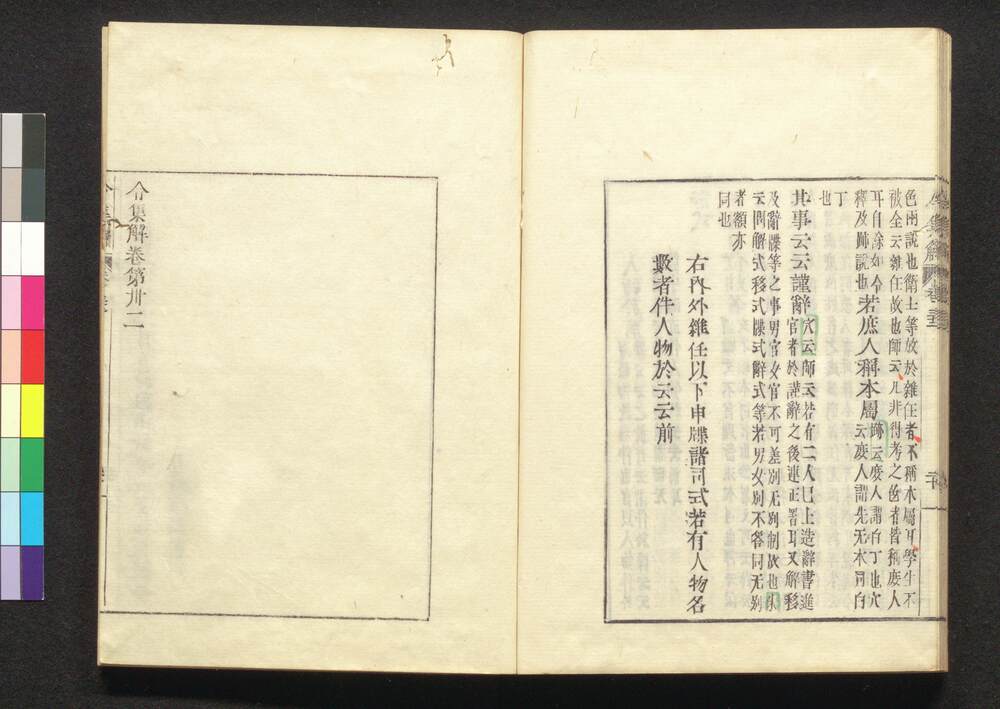 色兩説也衛士等放於雜任者不稱本屬耳學生不
被全云雜任故也師云凡非得考之色者皆稱庶人
耳自餘如令
釋及跡説也若庶人稱本屬跡云庶人謂有丁也穴
云庶人謂先无本司白
丁
也
其事云云謹辭穴云師云若有二人已上造辭書進
者於謹辭之後連正署耳又解移
及辭牒等之事男官女官不可差別无別制故也
云問解式移式牒式辭式等若男女別不答同无別
者額亦
同也
右内外雜任以下申牒諸司式若有人物名
數者件人物於云云前
令集解卷第卅二